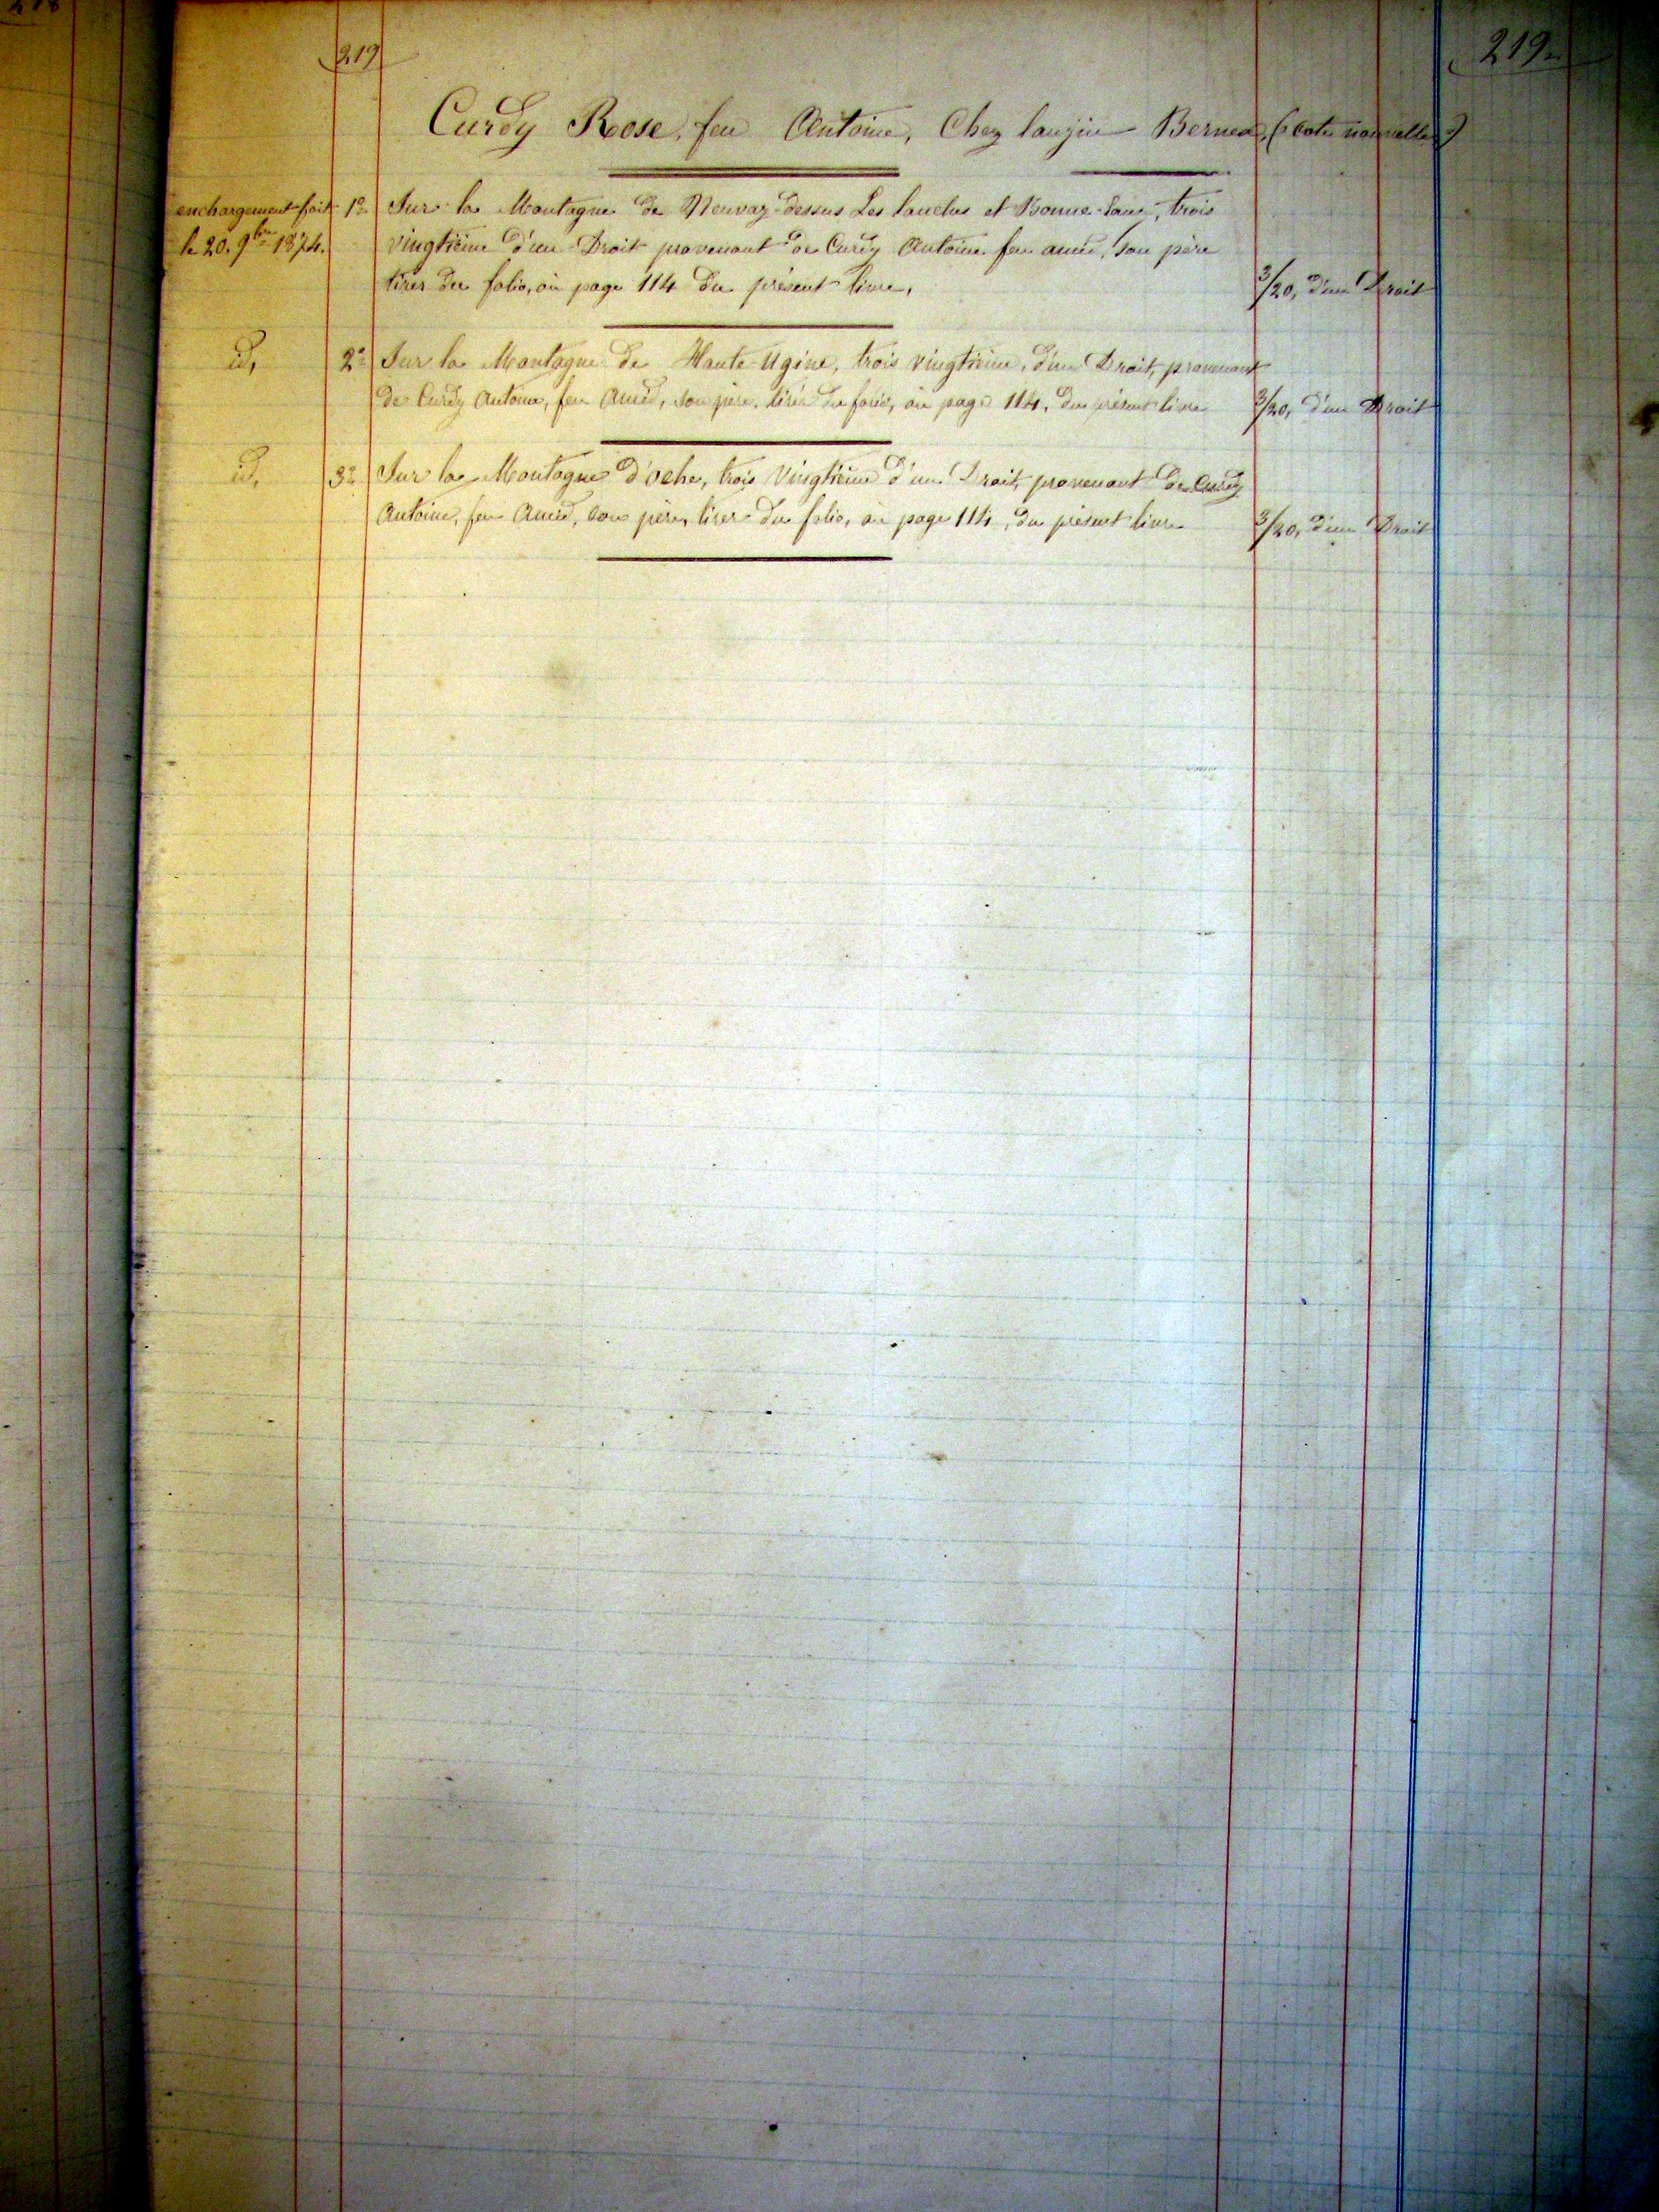 218
219
219
Curdy Rose, feu Antoine, Chez laugin Bernex, (cote nouvelle)
enchargement fait 1º Sur la Montagne de Neuvaz-dessus Les lanches et Bonne-eau, trois
le 20. 9bre 1874. vingtième d'un Droit provenant de Curdy Antoine feu amié, son père
tirer du folio, ou page 114 du présent livre, 3/20, d'un Droit
id, 2º Sur la Montagne de Haute-Ugine, trois vingtième, d'un Droit, provenant
de Curdy Antoine, feu Amié, son père, tirer du folio, ou page 114, du présent livre 3/20, d'un Droit
id, 3º Sur la Montagne d'oche, trois Vingtième d'un Droit, provenant de Curdy
Antoine, feu Amié, son père, tirer du folio, ou page 114, du présent livre 3/20, d'un Droit